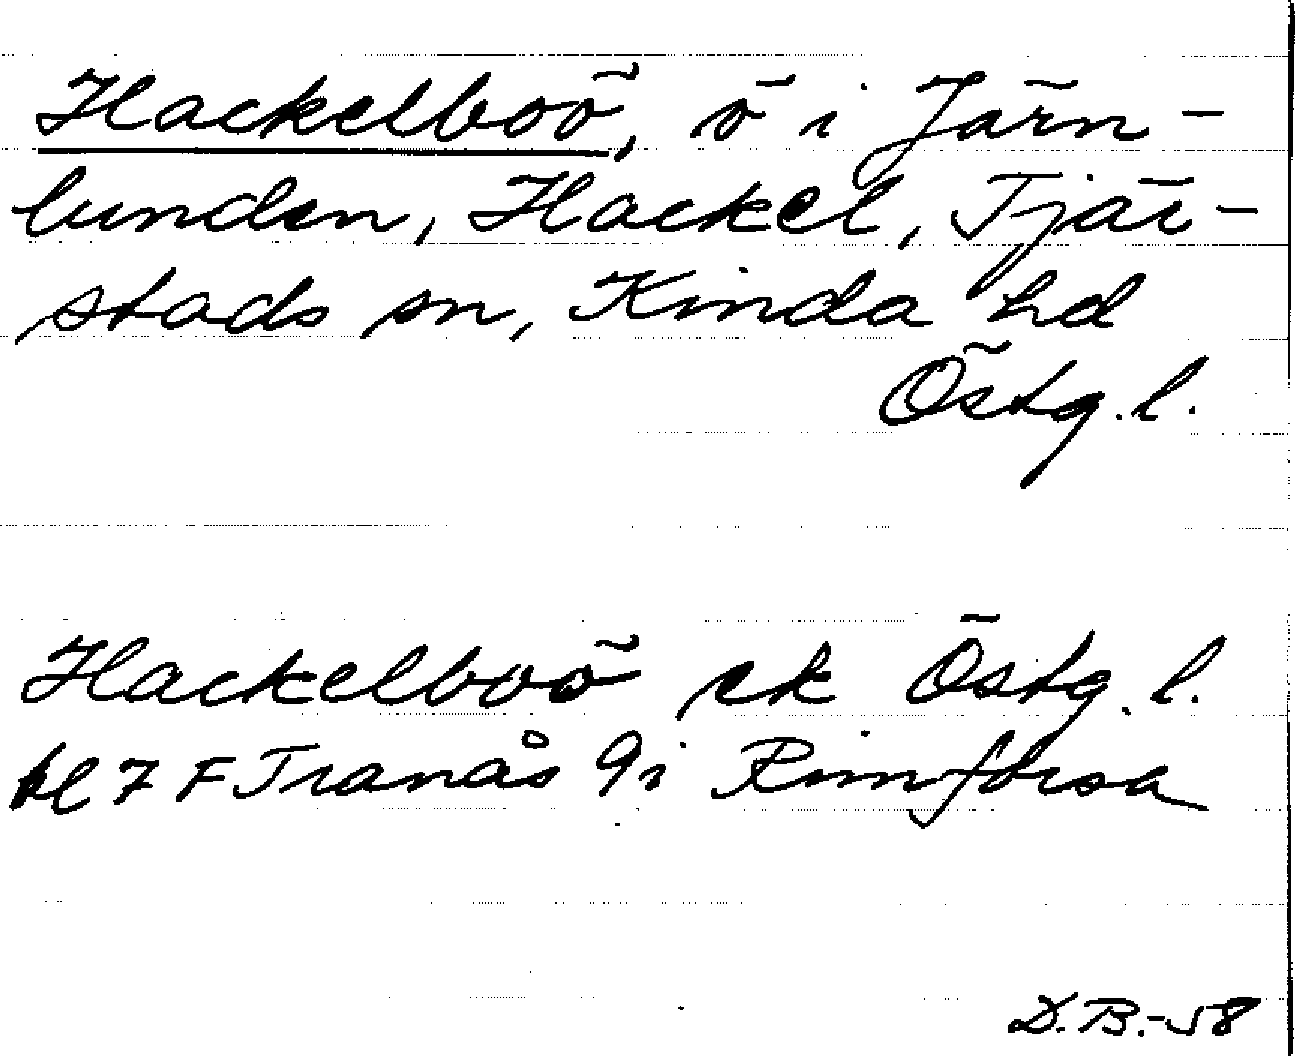 Hackelboö, ö i Järn-
lunden, Hackel, Tjär-
stads sn, Kinda hd
Östg. l.
Hackelboö ek Östg. l.
bl 7 F Tranås 9i Rimforsa
D.B.-58